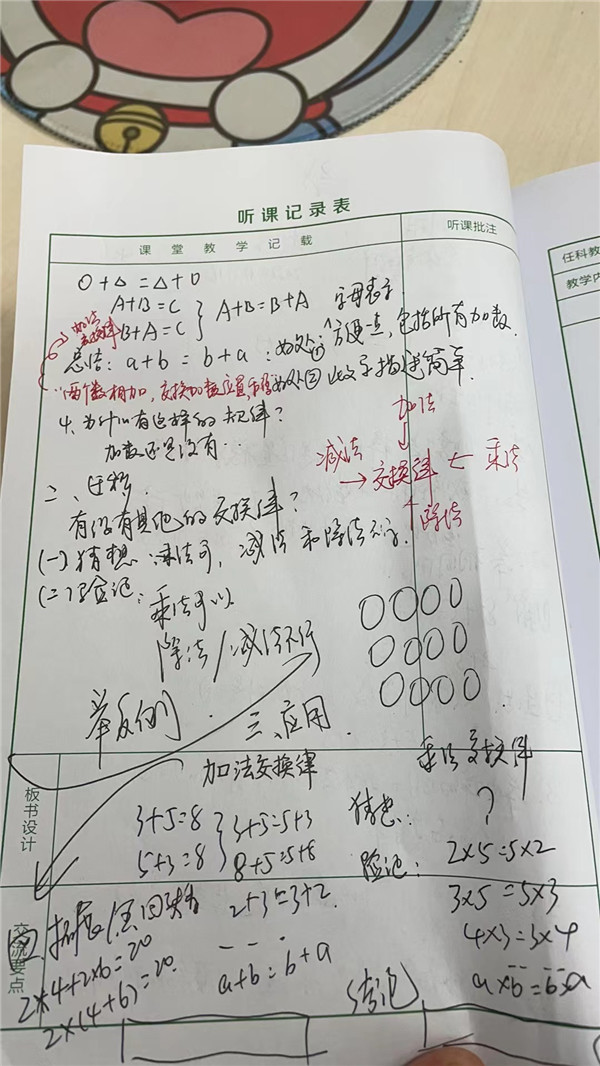 听课记录表
课堂教学记载
听课批注
任科教
教学内
○+△=△+○
A+B=C
B+A=C
A+B=B+A 字母表示
加法交换律
总结:a+b=b+a:好处①:方便一点,包括所有加数.
两个数相加,交换加数位置,和 好处② 比文字描述简单.
4、为什么有这样的规律?
加数还是没有…
加法
减法 → 交换律 ← 乘法
除法
二、迁移.
有没有其他的交换律?
(一)猜想:乘法可,减法和除法不行.
(二)验证:乘法可以
除法/减法不行
举反例.
三、应用.
板书设计
加法交换律
3+5=8
5+3=8
3+5=5+3
8+5=5+8
2+3=3+2.
a+b=b+a
乘法交换律
猜想: ?
验证: 2×5=5×2
3×5=5×3
4×3=3×4
结论 a×b=b×a
交流要点
四、拓展
2×4+2×6=20
2×(4+6)=20.